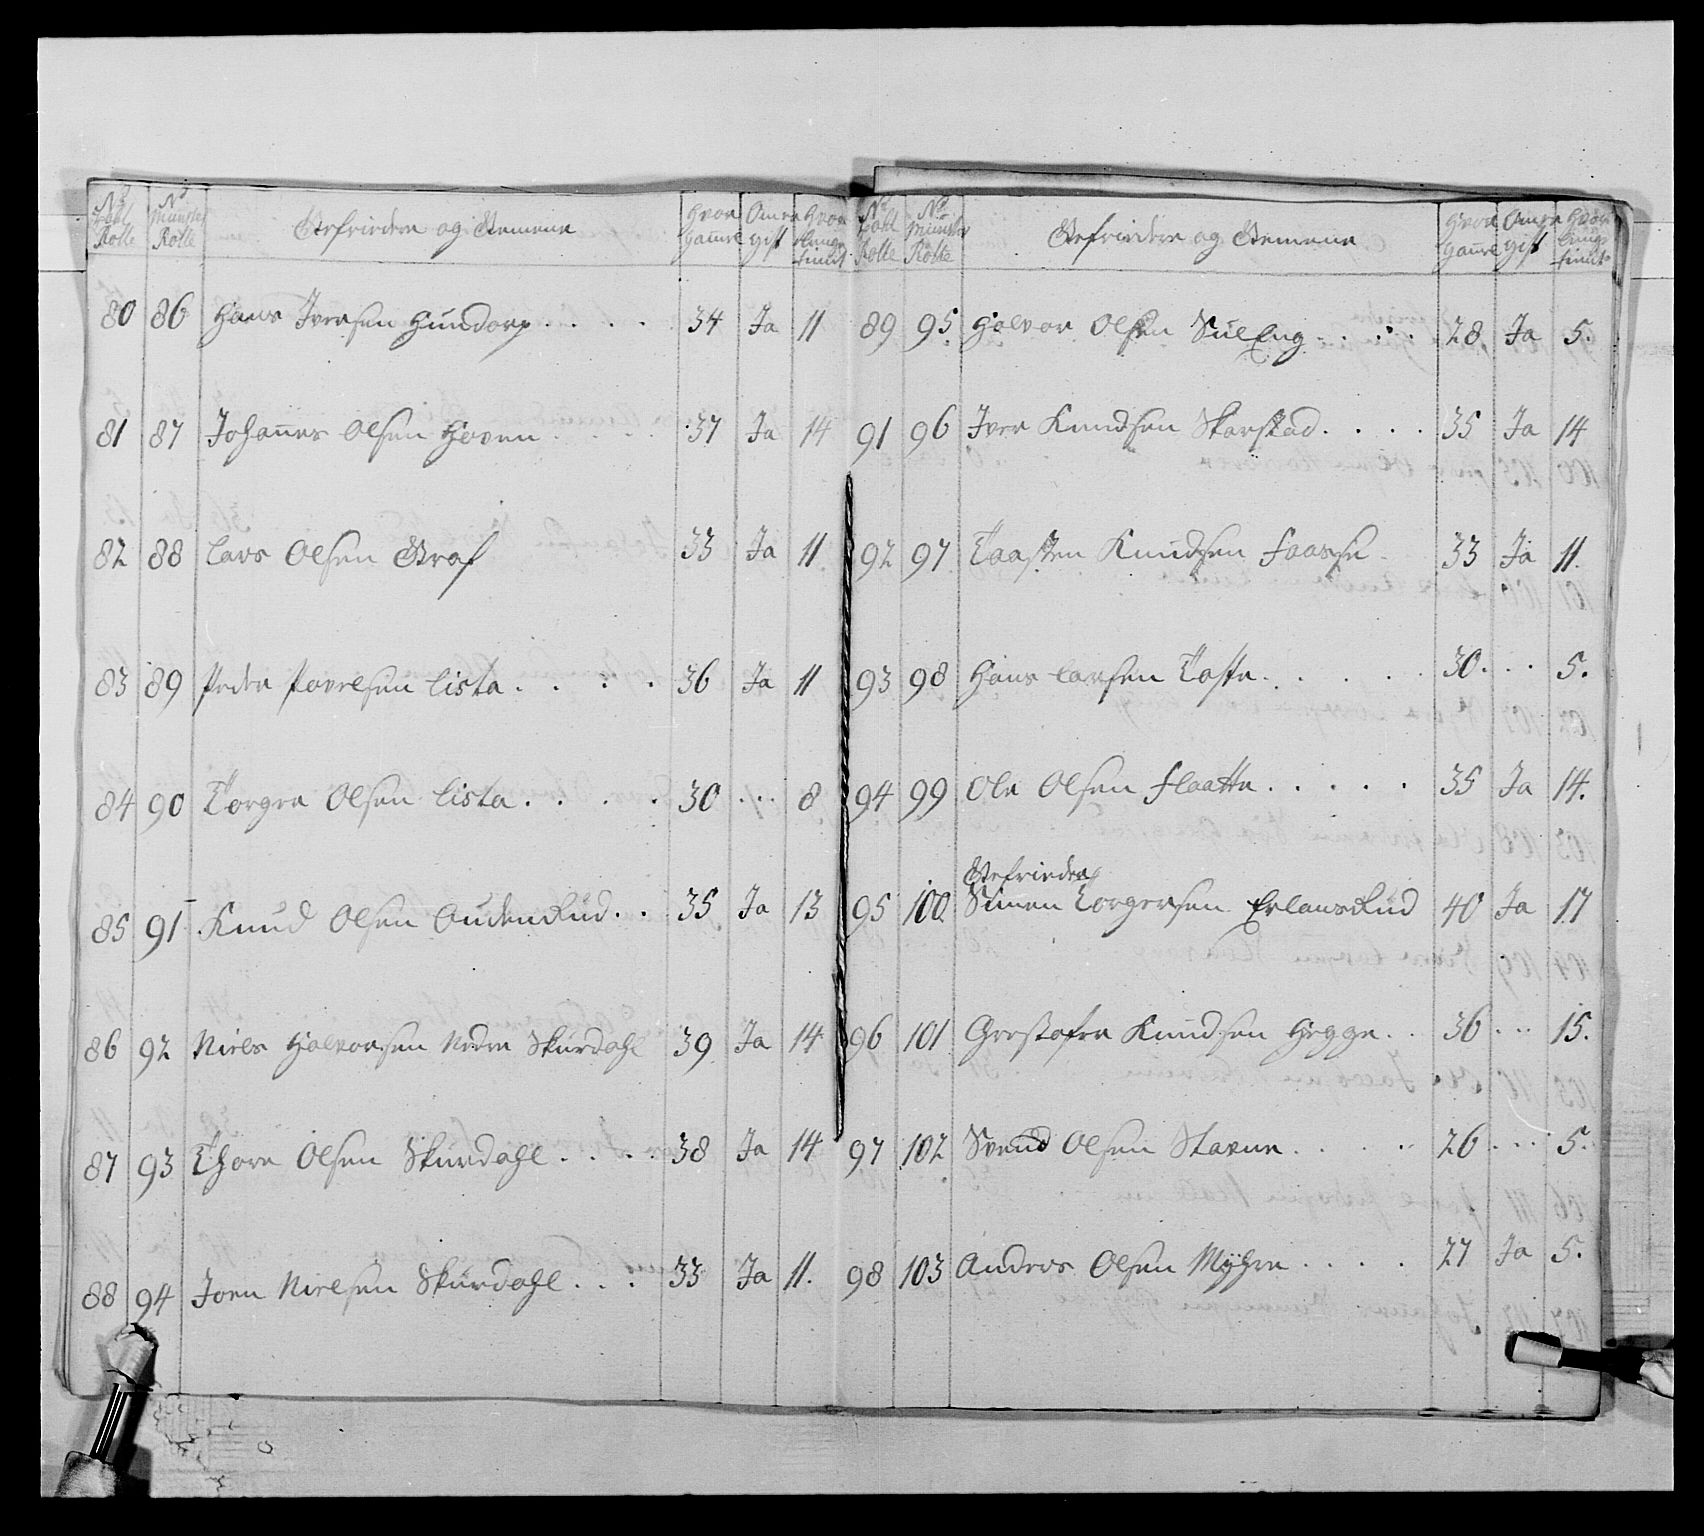 No Tabl Rolle No Münster Rolle Gefriedere og Gemene Hvor gamle Om er gift Hvor længe tient
80 86 Hans Iversen Hundorp . . . . 34 Ja 11
81 87 Johannes Olsen Hoven . . . . 37 Ja 14
82 88 Lars Olsen Graf 33 Ja 11
83 89 Peder Povelsen Lista . . . . 36 Ja 11
84 90 Torger Olsen Lista . . . . 30 ... 8
85 91 Knud Olsen AudenRud . . 35 Ja 13
86 92 Niels Halvorsen Nedre Skurdahl 39 Ja 14
87 93 Thore Olsen Skurdahl . . . . 38 Ja 14
88 94 Joen Nielsen Skurdahl . . . 33 Ja 11.
No Tabl Rolle No Münster Rolle Gefriedere og Gemene Hvor gamle Om er gift Hvor længe tient
89 95 Halvor Olsen SulEng . . . . 28 Ja 5.
91 96 Iver Knudsen Skarstad . . . . 35 Ja 14
92 97 Taasten Knudsen Faasse 33 Ja 11.
93 98 Hans Larsen Tofte . . . . . 30 . . . 5.
94 99 Ole Olsen Flaatte . . . . . 35 Ja 14.
Gefrieder
95 100 Simen Torgersen ErlansRud 40 Ja 17
96 101 Grestofer Knudsen Hegge . . 36 ... 15.
97 102 Svend Olsen Stavne . . . . 26 . . . 5.
98 103 Anders Olsen Myhre . . . . 27 Ja 5.